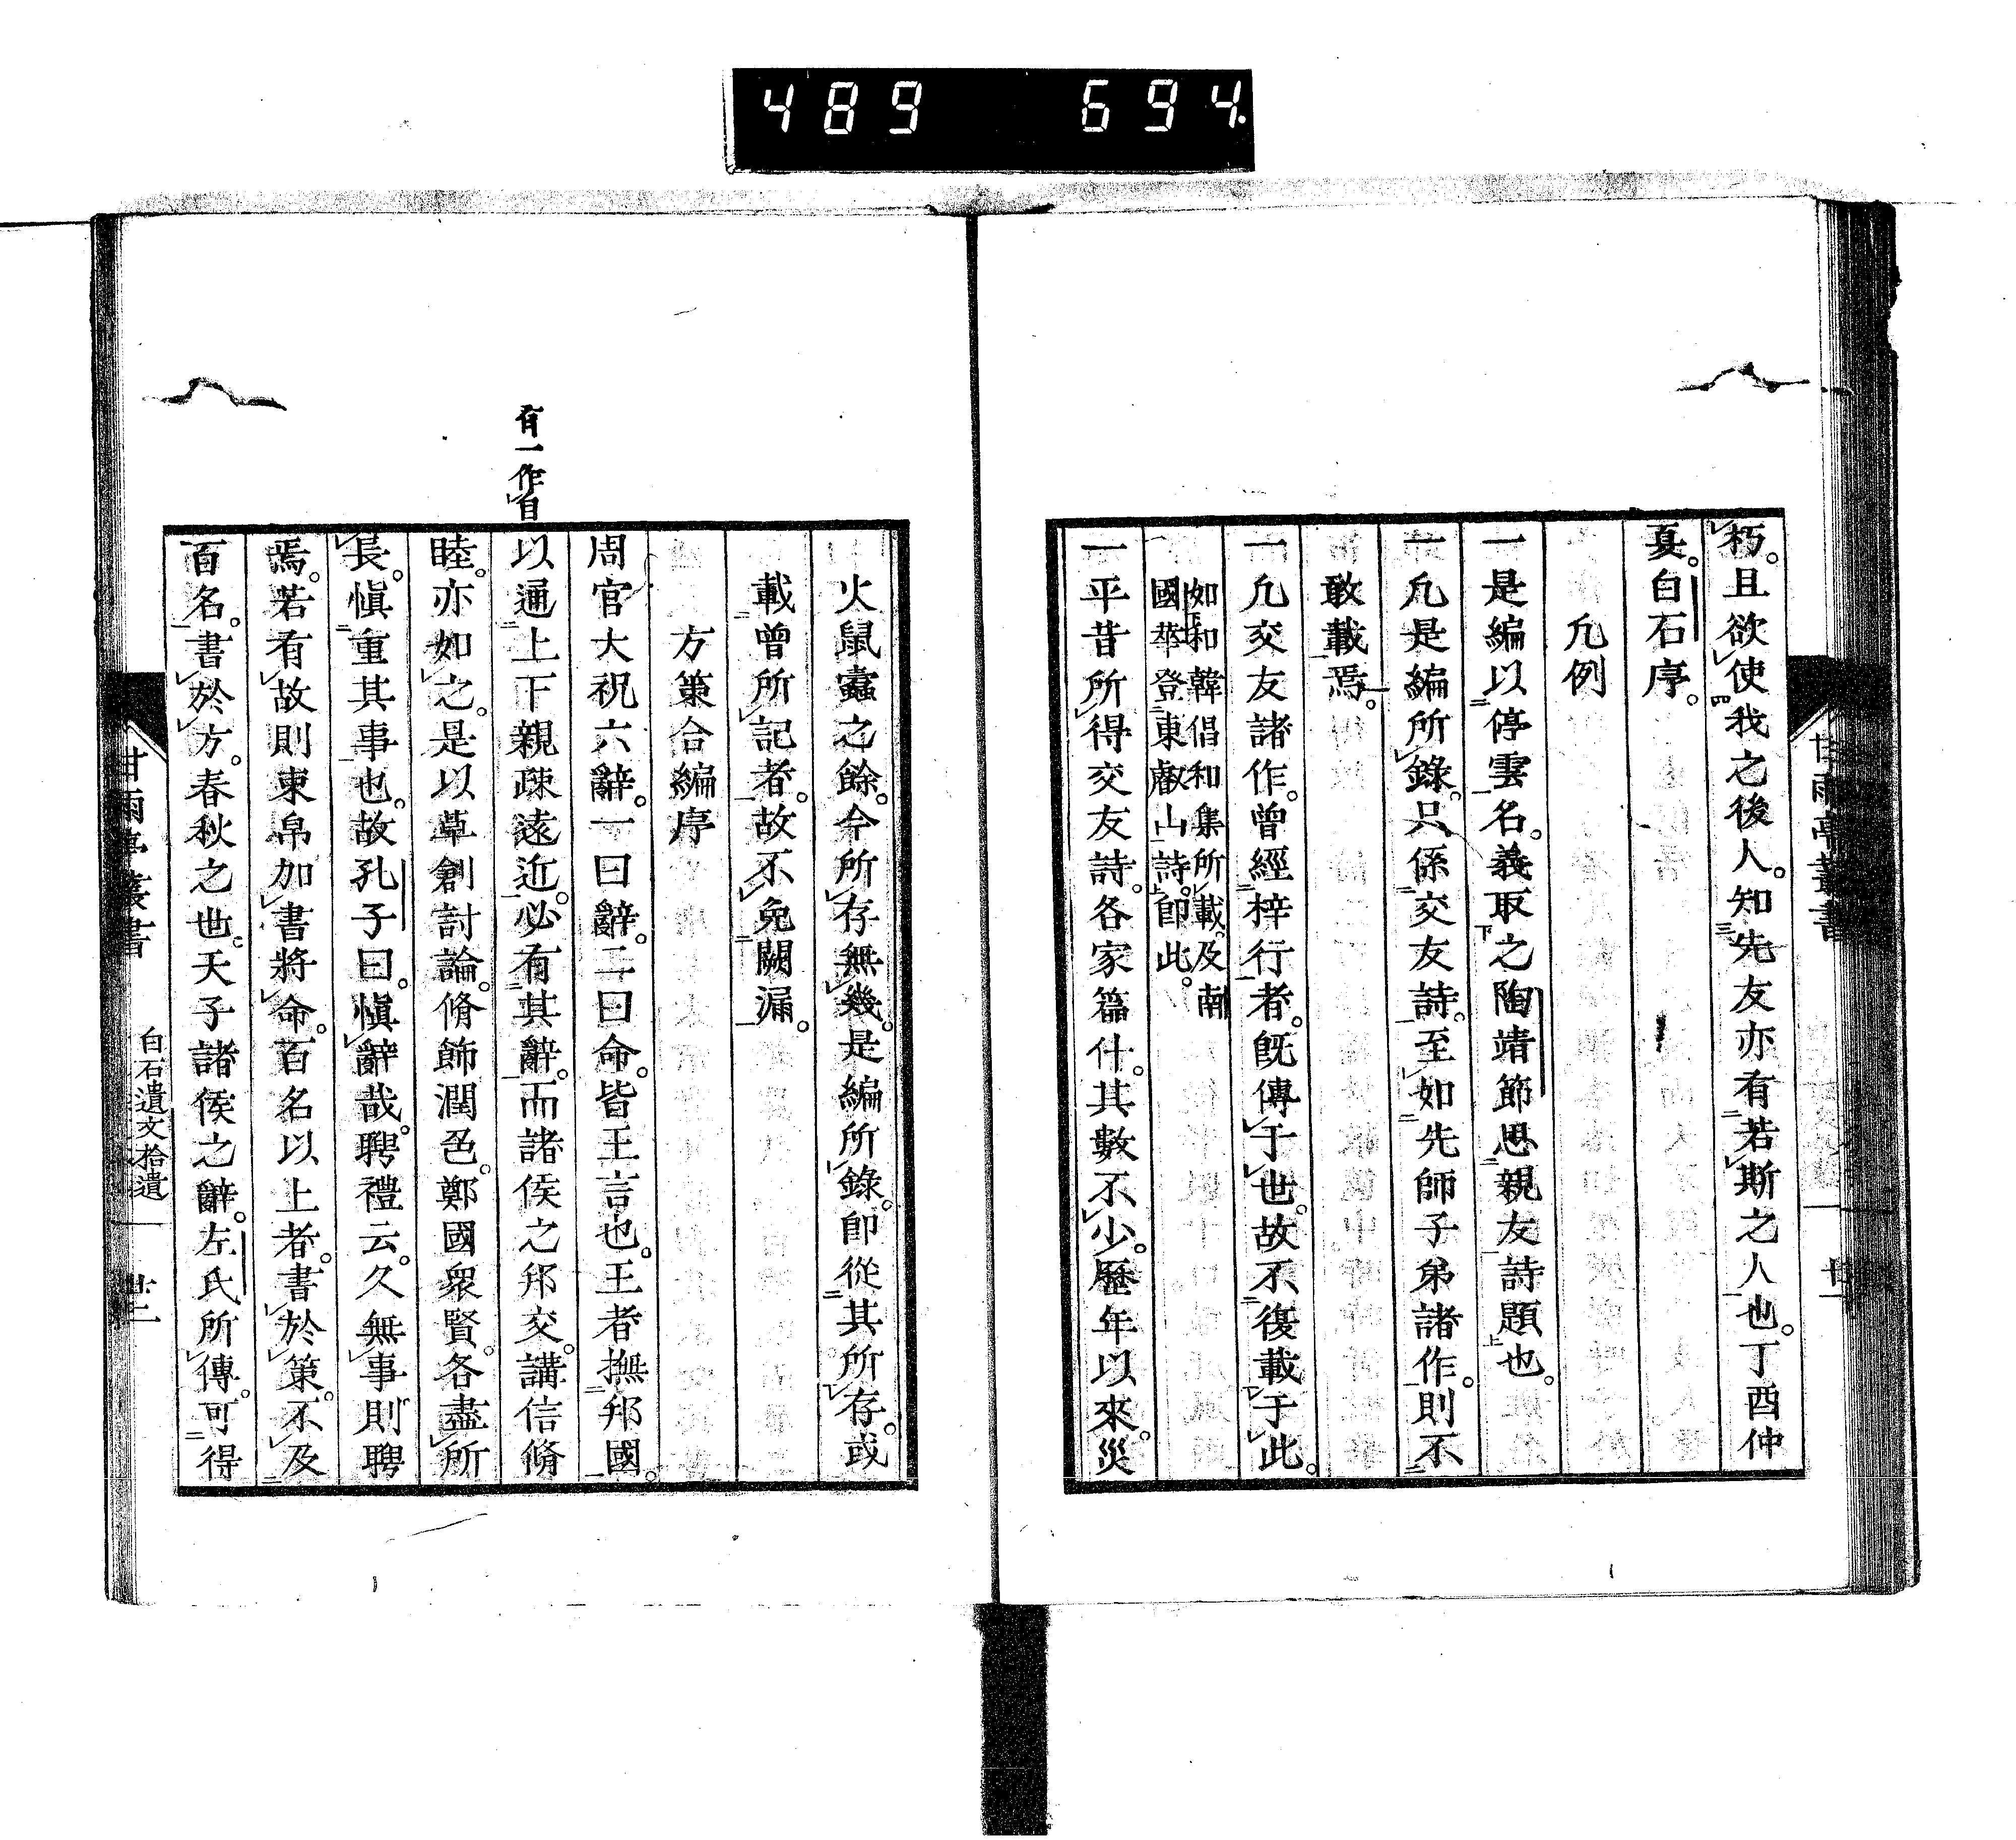 489 694.
朽。且欲使我之後人。知先友亦有若斯之人也。丁酉仲
夏。白石序。
凢例
一是編以停雲名。義取之陶靖節思親友詩題也。
一凢是編所錄。只係交友詩。至如先師子弟諸作。則不
敢載焉。
一凢交友諸作。曾經梓行者。旣傳于世也。故不復載于此。
如和韓倡和集所載。及南
國華登東叡山詩。卽此。
一平昔所得交友詩。各家篇什。其數不少。歷年以來。災
火鼠蠹之餘。今所存無幾。是編所錄。卽從其所存。或
載曾所記者。故不免闕漏。
方策合編序
周官大祝六辭。一曰辭。二曰命。皆王言也。王者撫邦國。
有一作自
以通上下親疎遠近。必有其辭。而諸侯之邦交。講信脩
睦。亦如之。是以草創討論。脩飾潤色。鄭國衆賢。各盡所
長。愼重其事也。故孔子曰。愼辭哉。聘禮云。久無事則聘
焉。若有故則束帛加書將命。百名以上者。書於策。不及
百名。書於方。春秋之世。天子諸侯之辭。左氏所傳。可得
甘雨亭叢書
白石遺文拾遺
甘雨亭叢書